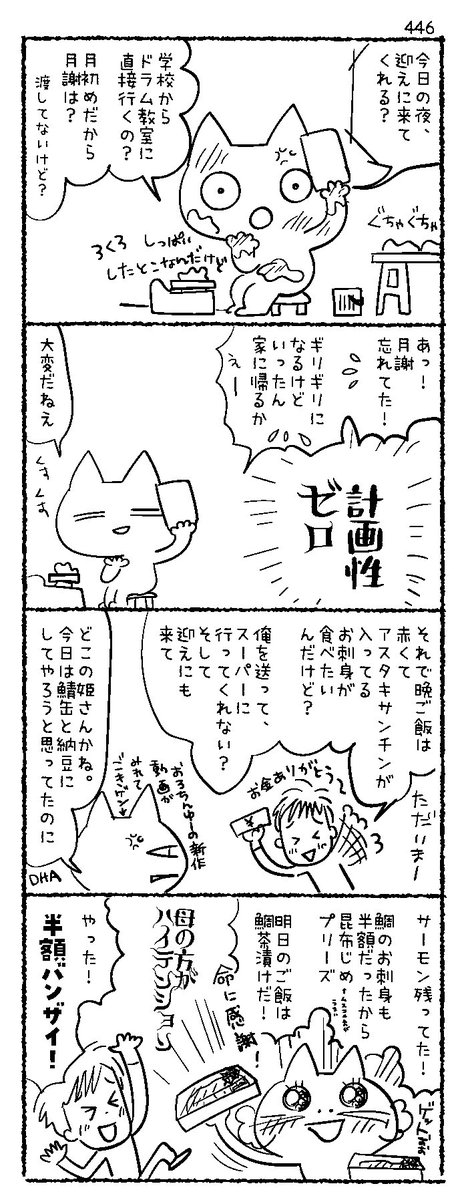 446
今日の夜、
迎えに来て
くれる？
学校から
ドラム教室に
直接行くの？
月初めだから
月謝は？
渡してないけど？
ぐちゃぐちゃ
ろくろ しっぱい
したとこなんだけど
あっ！
月謝
忘れてた！
ギリギリに
なるけど
いったん
家に帰るか
ぇー
計画性
ゼロ
大変だねえ
くすくす
それで晩ご飯は
赤くて
アスタキサンチンが
入ってる
お刺身が
食べたい
んだけど？
ただいまー
俺を送って、
スーパーに
行ってくれない？
そして
迎えにも
来て
お金ありがとう〜
どこの姫さんかね。
今日は鯖缶と納豆に
してやろうと思ってたのに
DHA
おろちんゆーの新作
動画が
みれて
ごきげん
サーモン残ってた！
鯛のお刺身も
半額だったから
昆布じめ
プリーズ
明日のご飯は
鯛茶漬けだ！
命に感謝！
母の方が
ハイテンション
やった！
半額バンザイ！